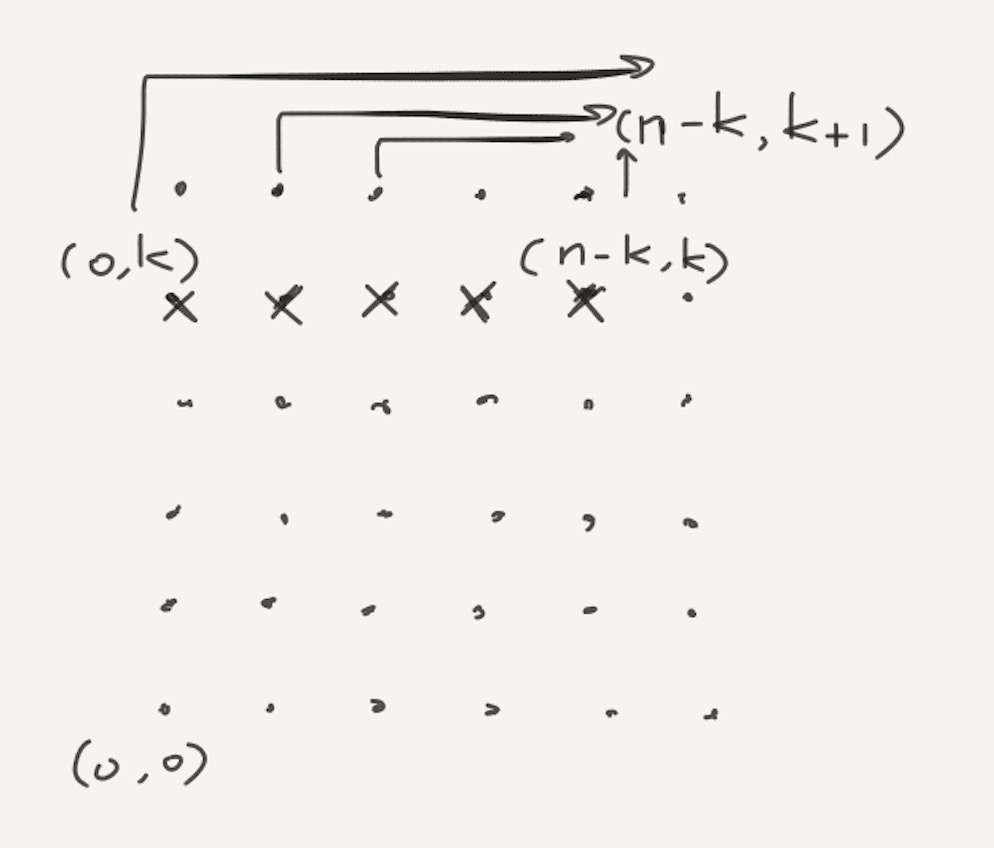 (n-k, k+1)
(0,k) (n-k,k)
(0,0)